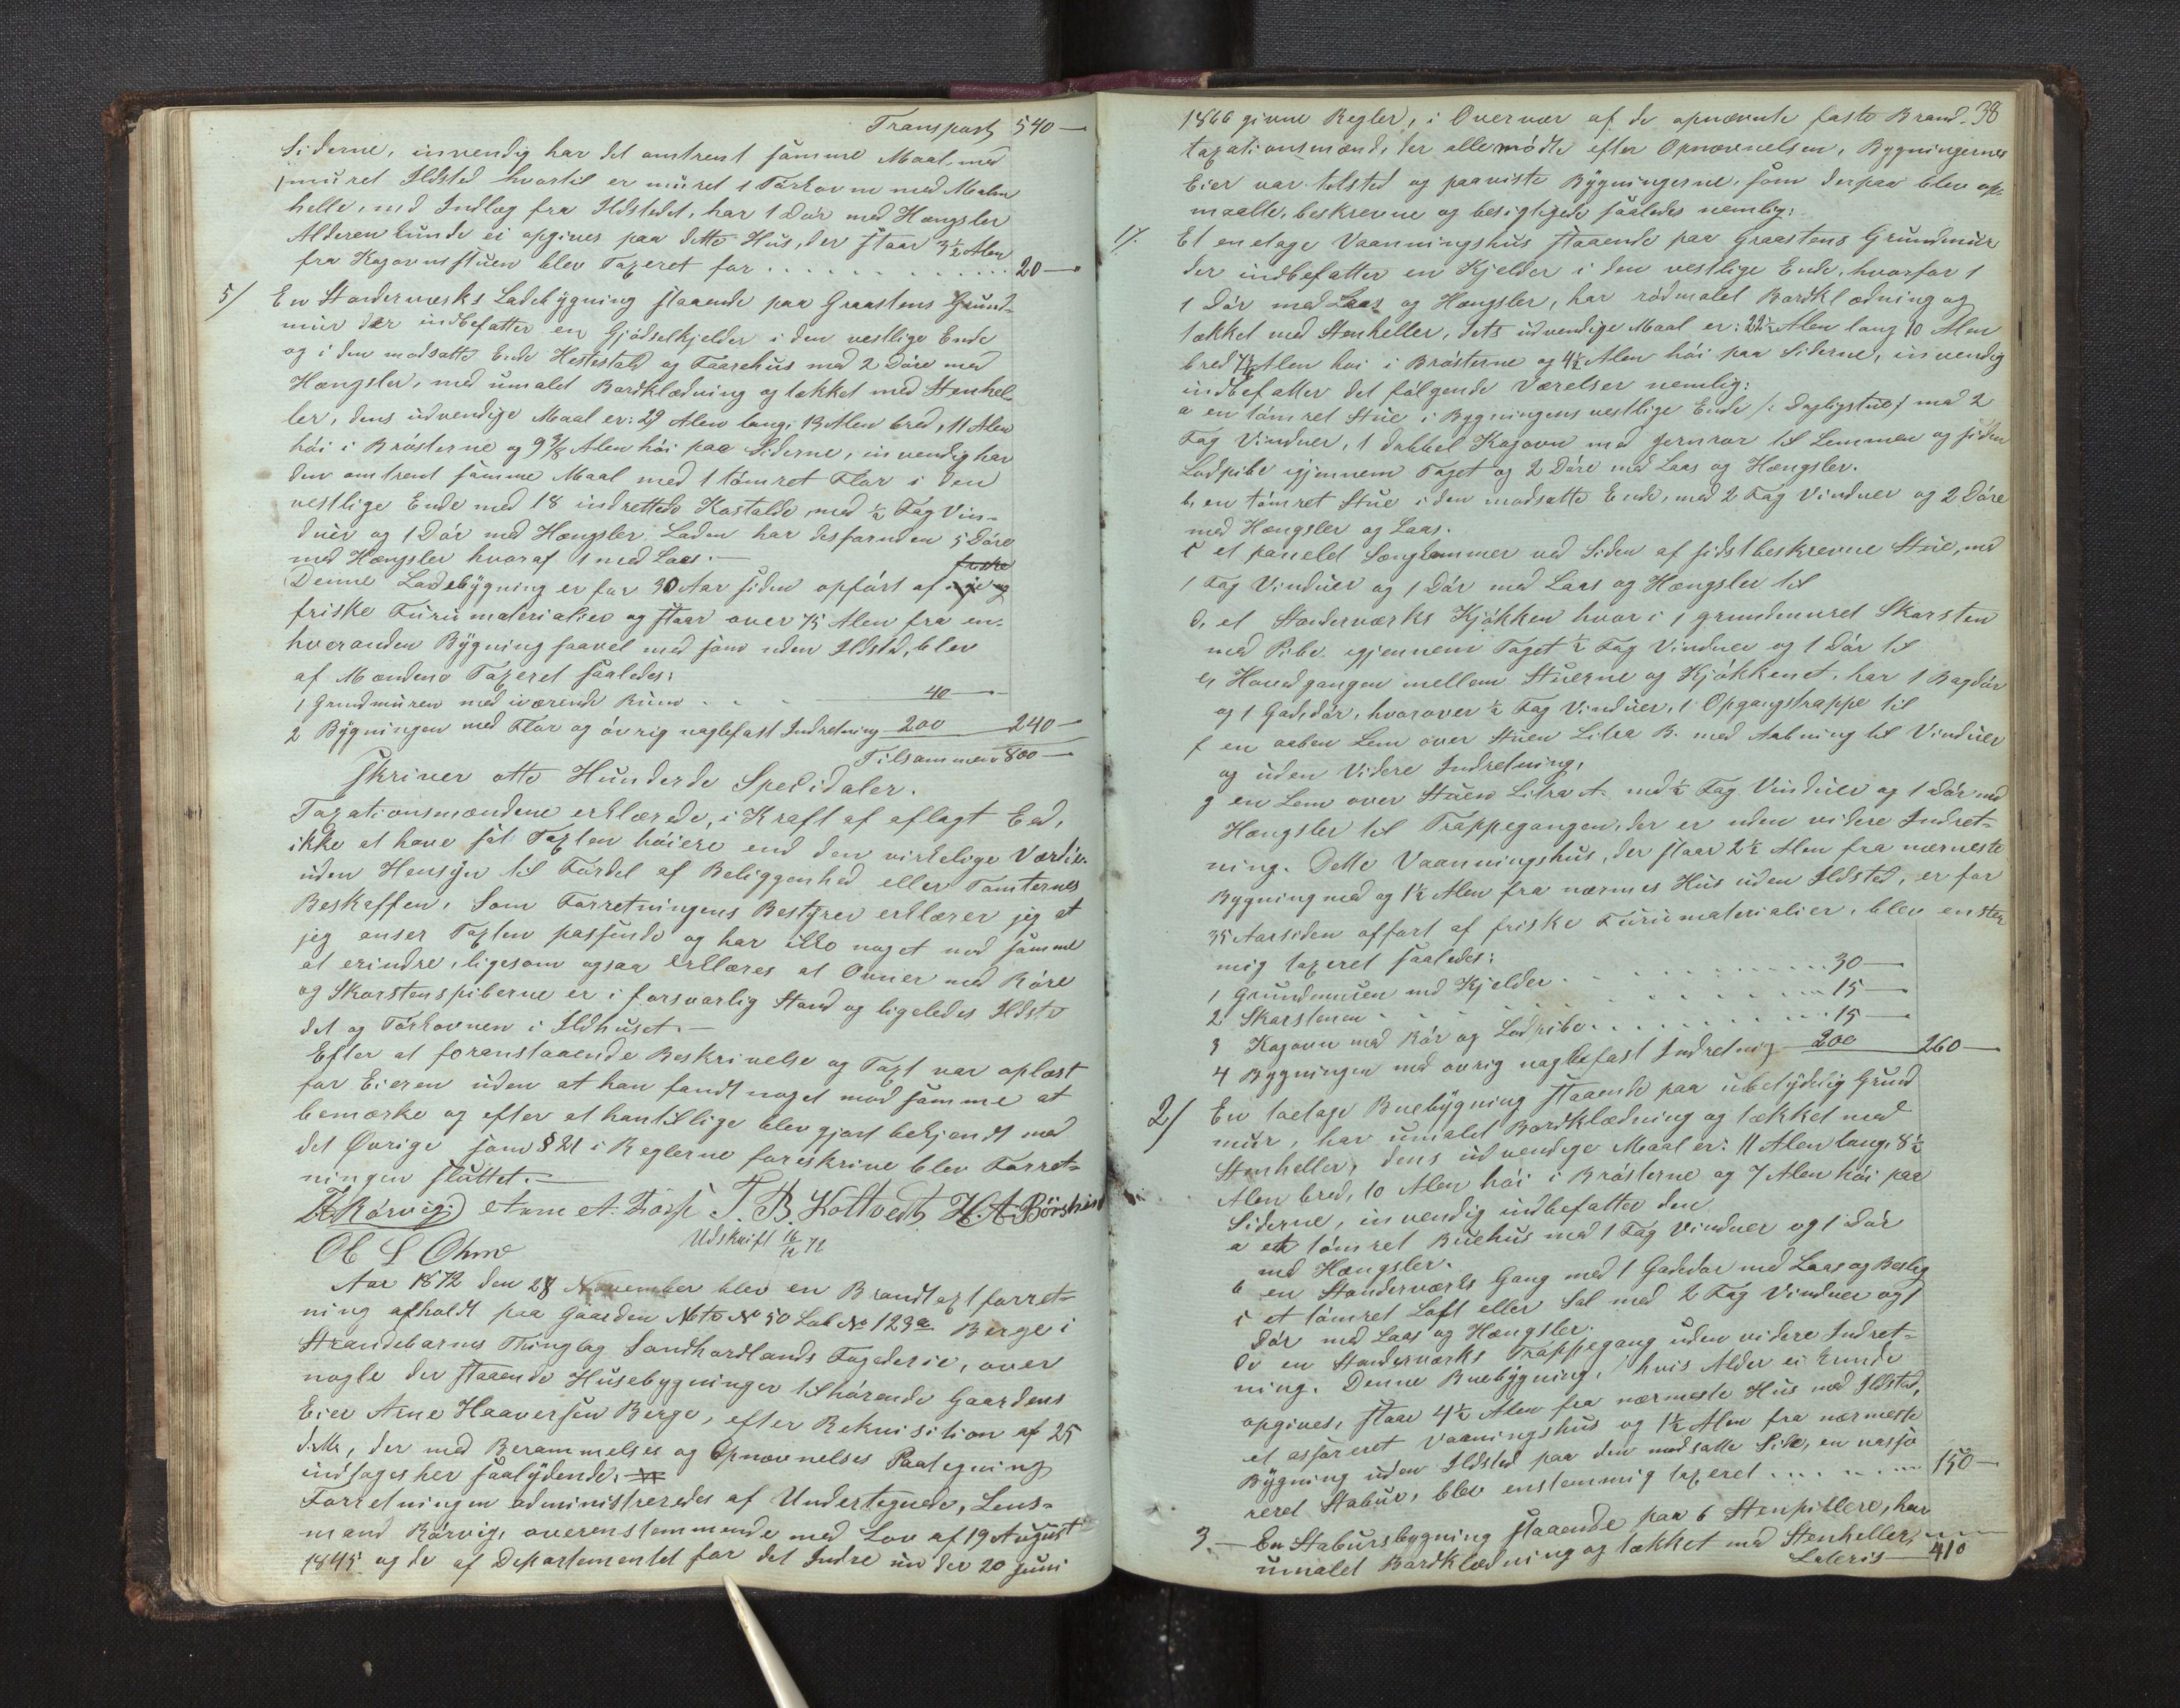 Transport 540 —
Siderne, invendig har det omtrent samme Maal med
1 muret Ildsted hvortil er muret 1 Tørkovn med Malm
helle, med Indlæg fra Ildstedet, har 1 Dør med Hængsler
Alderen kunde ei opgives paa dette Hus, der staar 3½ Alen
fra Kogovnsstuen blev Taxeret for . . . . . . . . . . . . . 20 —
5/ En Standerværks Ladebygning staaende paa Graastens Grund-
mur der indbefatter en Gjødselkjelder i den vestlige Ende
og i den modsatte Ende Hestestald og Faarehus med 2 Døre med
Hængsler, med umalet Bordklædning og tækket med Stenhel-
ler, dens udvendige Maal er: 29 Alen lang, 13 Alen bred, 11 Alen
høi i Brøsterne og 9 3/8 Alen høi paa Siderne, invendig har
den omtrent samme Maal med 1 tømret Flor i den
vestlige Ende med 18 indrettede Kostalde med ½ Fag Vin-
duer og 1 Dør med Hængsler. Laden har desforuden 5 Døre
med Hængsler hvoraf 1 med Laas. —
Denne Ladebygning er for 30 Aar siden opført af nye og
friske Furumaterialier og staar over 75 Alen fra en-
hveranden Bygning saavel med som uden Ildsted, blev
af Mændene Taxeret saaledes:
1 Grundmuren med iværende Rum . . . 40 —
2 Bygningen med Flor og øvrig naglefast Indretning 200 240 —
Tilsammen 800 —
Skriver otte Hunderde Specidaler.
Taxationsmændene erklærede, i Kraft af aflagt Eed,
ikke at have sat Taxten høiere end den virkelige Værdie
uden Hensyn til Fordel af Beliggenhed eller Tomternes
Beskaffen. Som Forretningens Bestyrer erklærer jeg at
jeg anser Taxten passende og har ikke noget mod samme
at erindre, ligesom ogsaa erklæres at Ovner med Røre
og Skorstenspiberne er i forsvarlig Stand og ligeledes Ildste
det og Tørkovnen i Ildhuset. —
Efter at foranstaaende Beskrivelse og Taxt var oplæst
for Eieren uden at han fandt noget mod samme at
bemærke og efter at han tillige blev gjort bekjendt med
det Øvrige som § 21 i Reglerne foreskrive blev Forret-
ningen sluttet. —
Rørvig T. B. Holtvedt H. A. Børsheim
Ol L Ohm Udskrift 16/12 72
Aar 1872 den 28 November blev en Brandtaxtforret-
ning afholdt paa Gaarden Mtr No 50 Løb No 129a Berge i
Strandebarms Thinglag Søndhordlands Fogderie, over
nogle der staaende Husebygninger tilhørende Gaardens
Eier Arne Haaversen Berge, efter Rekvisition af 25
d.M., der med Berammelses og Opnævnelses Paategning
indtages her saalydende.
Forretningen administreredes af Undertegnede, Lens-
mand Rørvig, overenstemmende med Lov af 19 August
1845 og de af Departementet for det Indre under 20 Juni
38
1866 givne Regler, i Overvær af de opnævnte faste Brand-
taxationsmænd, der alle mødte efter Opnævnelsen, Bygningernes
Eier var tilsted og paaviste Bygningerne, som derpaa blev op-
maalte, beskrevne og besigtigede saaledes nemlig:
1/. Et enetage Vaaningshus staaende paa Graastens Grundmur
der indbefatter en Kjelder i den vestlige Ende, hvorfor 1
1 Dør med Laas og Hængsler, har rødmalet Bordklædning og
tækket med Stenheller, dets udvendige Maal er: 22½ Alen lang 10 Alen
bred 7½ Alen høi i Brøsterne og 4½ Alen høi paa Siderne, invendig
indbefatter det følgende Værelser nemlig:
a en tømret Stue i Bygningens vestlige Ende /: Dagligstue :/ med 2
Fag Vinduer, 1 dobbel Kogovn med Jernrør til Lemmen og siden
Lodpibe igjennem Taget og 2 Døre med Laas og Hængsler.
b, en tømret Stue i den modsatte Ende, med 2 Fag Vinduer og 2 Døre
med Hængsler og Laas.
c et panelet Sengkammer ved Siden af sidstbeskrevne Stue, med
1 Fag Vinduer og 1 Dør med Laas og Hængsler til
d, et Standerværks Kjøkken hvor i 1 grundmuret Skorsten
med Pibe igjennem Taget ½ Fag Vinduer og 1 Dør til
e, Hovedgangen mellem Stuerne og Kjøkkenet, har 1 Bagdør
og 1 Gadedør, hvorover ½ Fag Vinduer, 1 Opgangstrappe til
f en aaben Lem over Stuen Litra B. med Aabning til Vinduer
og uden Videre Indretning,
g en Lem over Stuen Litra A. med ½ Fag Vinduer og 1 Dør med
Hængsler til Trappegangen, der er uden videre Indret-
ning. Dette Vaaningshus, der staar 2½ Alen fra nærmeste
Bygning med og 1½ Alen fra nærmes Hus uden Ildsted, er for
35 Aar siden opført af friske Furumaterialier, blev enstem
mig taxeret saaledes:
1 Grundmuren med Kjelder . . . . . . . 30 —
2 Skorstenen . . . . . . . 15 —
3 Kogovn med Rør og Lodpibe . . . . . . . 15 —
4 Bygningen med øvrig naglefast Indretning 200 260 —
2/ En toetage Buebygning staaende paa ubetydelig Grund
mur, har umalet Bordklædning og tækket med
Stenheller, dens udvendige Maal er: 11 Alen lang, 8½
Alen bred, 10 Alen høi i Brøsterne og 7 Alen høi paa
Siderne, invendig indbefatter den
a et tømret Buehus med 1 Fag Vinduer og 1 Dør
med Hængsler.
b en Standerværks Gang med 1 Gadedør med Laas og Beslag
c et tømret Loft eller Sal med 2 Fag Vinduer og 1
Dør med Laas og Hængsler.
d en Standerværks Trappegang uden videre Indret-
ning. Denne Buebygning, hvis Alder ei kunde
opgives, staar 4½ Alen fra nærmeste Hus med Ildsted,
et assureret Vaaningshus og 1½ Alen fra nærmeste
Bygning uden Ildsted paa den modsatte Side, en
Stabur, blev enstemmig taxeret . . . . . . . 150 —
3. — En Stabursbygning staaende paa 6 Stenpillere, har
umalet Bordklædning og tækket med Stenheller,
Lateris — 410